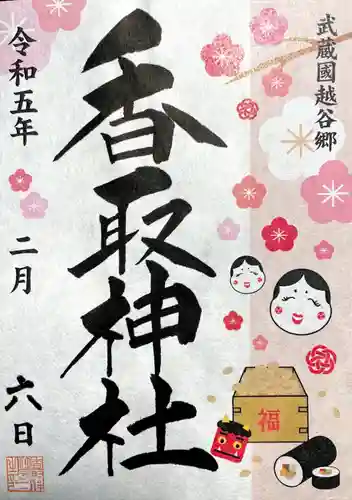 武蔵國越谷郷
香取神社
令和五年
二月
六日
福